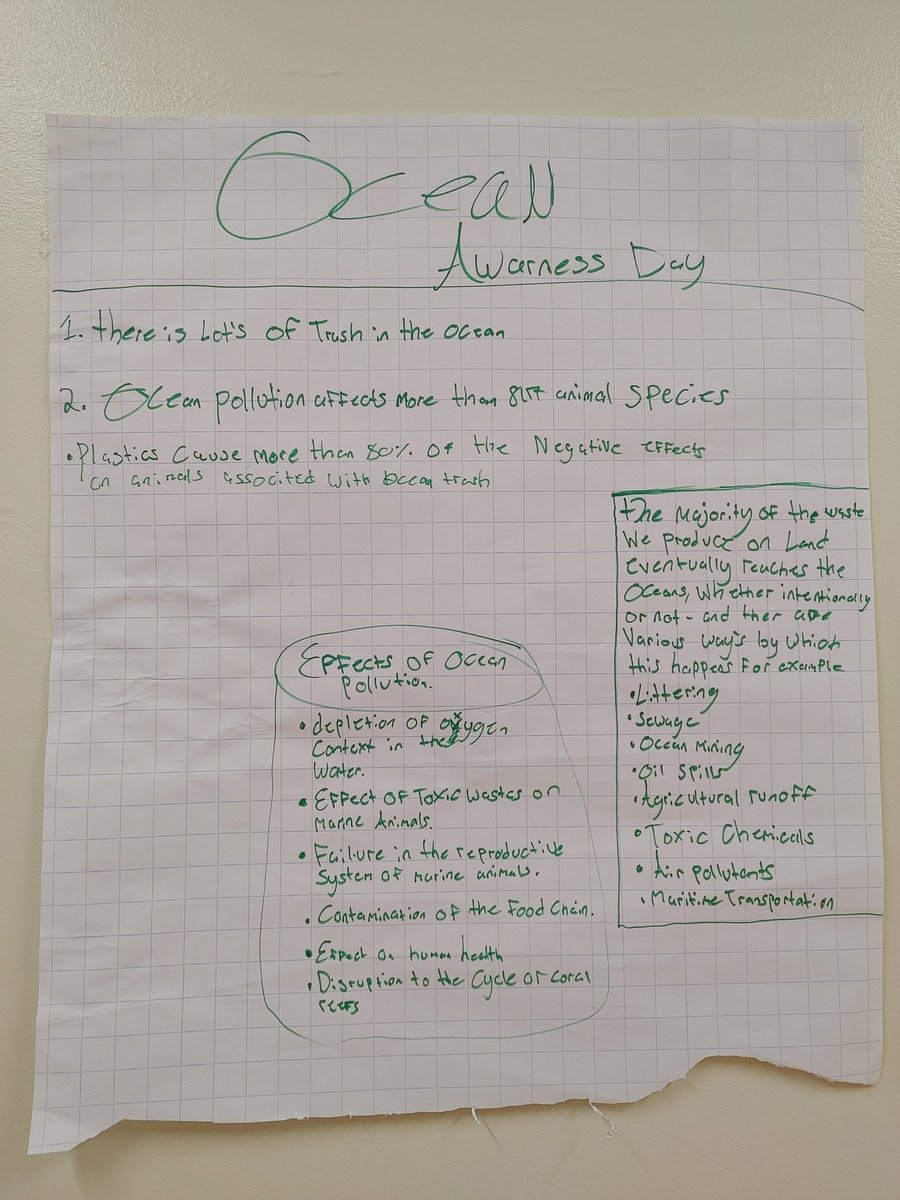 Ocean
Awarness Day
1. there is Lot's of Trash in the ocean
2. Ocean pollution affects more than 817 animal species
• Plastics Cause more than 80% of the Negative effects
on animals associted with ocean trash
The majority of the waste
We produce on Land
eventually reaches the
Oceans, whether intentionally
or not - and ther are
various way's by which
this happens for example
• Littering
• Sewage
• Ocean Mining
• Oil spills
• Agricultural runoff
• Toxic Chemicals
• Air pollutants
• Maritime Transportation
Effects of Ocean
pollution.
• depletion of oxygen
Context in the
Water.
• Effect of Toxic Wastes on
Marine Animals.
• Failure in the reproductive
System of marine animals.
• Contamination of the Food Chain.
• Effect on human health
• Disruption to the Cycle of coral
reefs